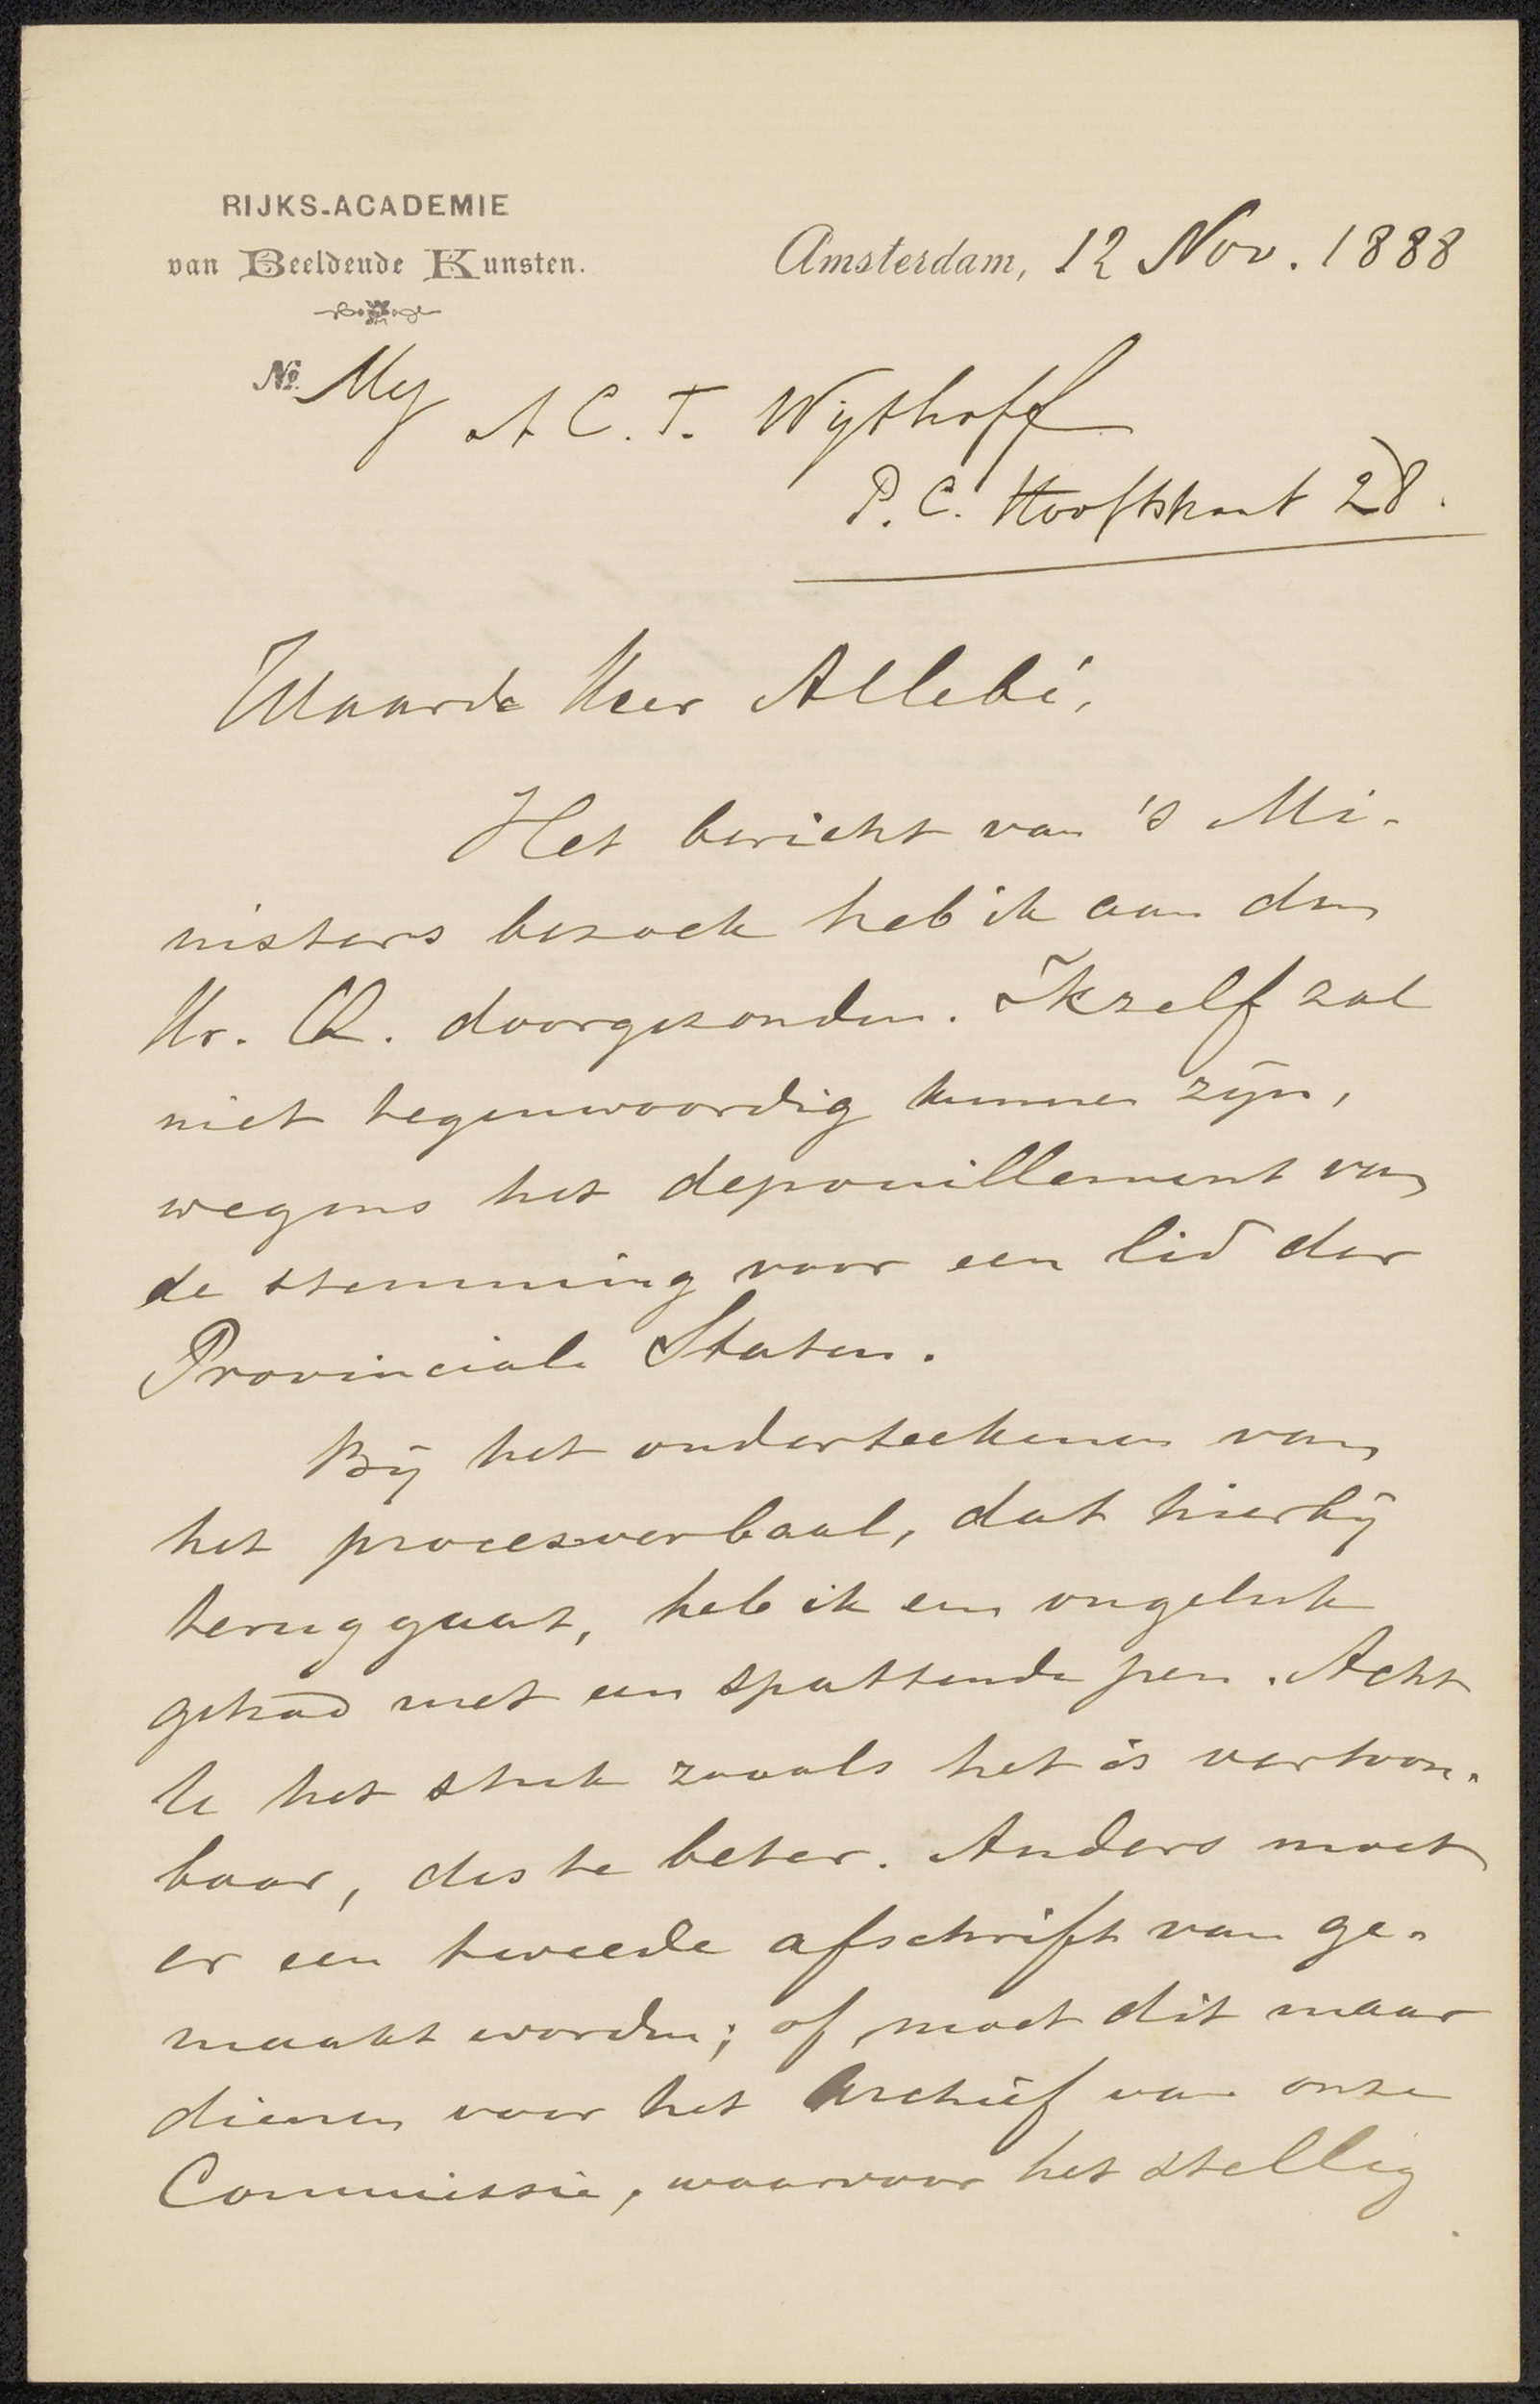 RIJKS-ACADEMIE
van Beeldende Kunsten.
Amsterdam, 12 Nov. 1888
No. Mej
A C. T. Wijthoff
P. C. Hooftstraat 28.
Waarde Heer Allebé,
Het bericht van 's Mi-
nisters bezoek heb ik aan den
Hr. Q. doorgezonden. Ikzelf zal
niet tegenwoordig kunnen zijn,
wegens het depouillement van
de stemming voor een lid der
Provinciale Staten.
Bij het onderteekenen van
het procesverbaal, dat hierbij
teruggaat, heb ik een ongeluk
gehad met een spattende pen. Acht
U het stuk zooals het is vertoon-
baar, des te beter. Anders moet
er een tweede afschrift van ge-
maakt worden; of moet dit maar
dienen voor het Archief van onze
Commissie, waarvoor het stellig